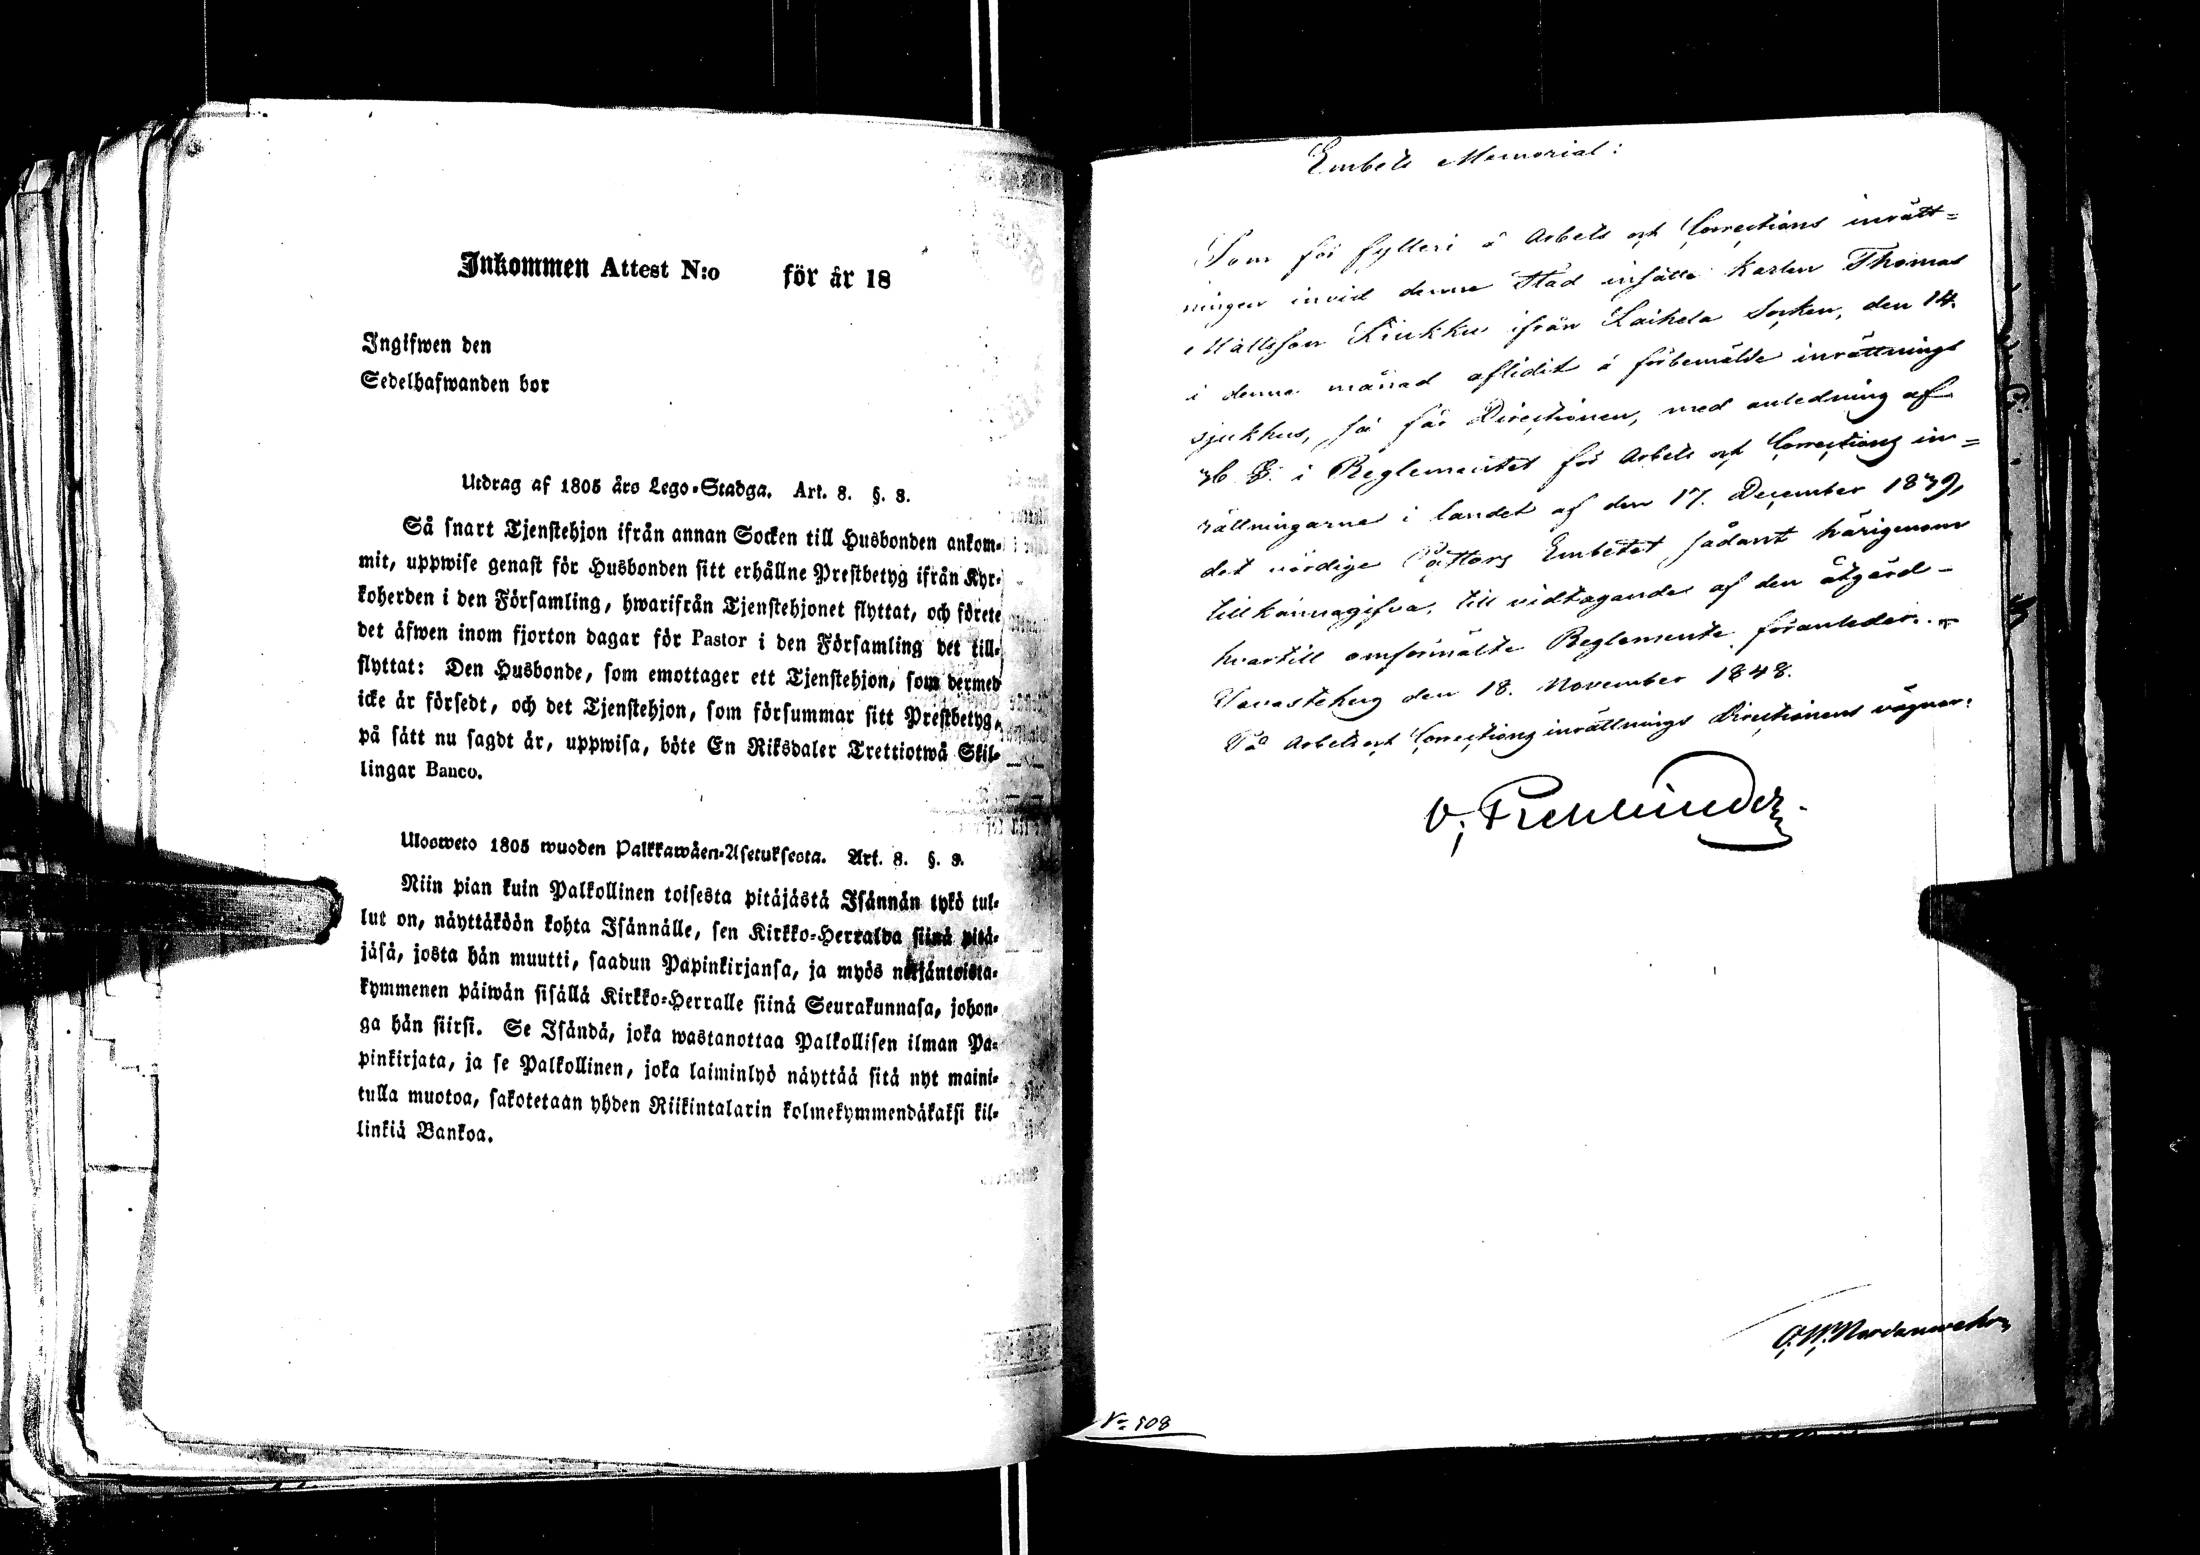 Inkommen Attest N:o för år 18
Ingifwen den
Sedelhafwanden bor
Utdrag af 1805 års Lego-Stadga. Art. 8. §. 3.
Så snart Tjenstehjon ifrån annan Socken till Husbonden ankom-
mit, uppwise genast för Husbonden sitt erhållne Prestbetyg ifrån Kyr-
koherden i den Församling, hwarifrån Tjenstehjonet flyttat, och förete
det äfwen inom fjorton dagar för Pastor i den Församling det till-
flyttat: Den Husbonde, som emottager ett Tjenstehjon, som dermed
icke är försedt, och det Tjenstehjon, som försummar sitt Prestbetyg,
på sätt nu sagdt är, uppwisa, böte En Riksdaler Trettiotwå Skil-
lingar Banco.
Ulosweto 1805 wuoden Palkkawäen-Asetuksesta. Art. 8. §. 3.
Niin pian kuin Palkollinen toisesta pitäjästä Isännän tykö tul-
lut on, näyttäköön kohta Isännälle, sen Kirkko-Herralda siinä pitä-
jäsä, josta hän muutti, saadun Papinkirjansa, ja myös neljäntoista-
kymmenen päiwän sisällä Kirkko-Herralle siinä Seurakunnasa, johon-
ga hän siirsi. Se Isändä, joka wastanottaa Palkollisen ilman Pa-
pinkirjata, ja se Palkollinen, joka laiminlyö näyttää sitä nyt maini-
tulla muotoa, sakotetaan yhden Riikintalarin kolmekymmendäkaksi kil-
linkiä Bankoa.
Embets Memorial:
Som för fylleri å Arbets och Corrections inrätt-
ningen invid denne Stad insatte Karlen Thomas
Mattsson Kiukku ifrån Laihela Socken, den 14.
i denne månad aflidit å förbemälde inrättnings
sjukhus, så får Directionen, med anledning af
36 §. i Reglementet för Arbets och Corrections in-
rättningarne i landet af den 17. December 1839,
det vördige Pastors Embetet sådant härigenom
tillkännagifva, till vidtagande af den åtgärd
hvartill omförmälte Reglemente föranleder.
Tavastehus den 18. November 1848.
På Arbets och Corrections inrättnings Directionens vägnar:
O. W. Nordenswan
No 508